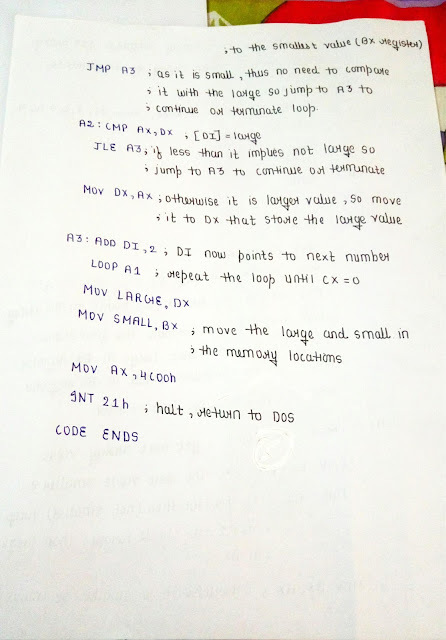 ; to the smallest value (BX register)
JMP A3 ; as it is small, thus no need to compare
; it with the large so jump to A3 to
; continue or terminate loop.
A2: CMP AX, DX ; [DI] = large
JLE A3; if less than it implies not large so
; jump to A3 to continue or terminate
MOV DX, AX ; otherwise it is larger value, so move
; it to DX that store the large value
A3: ADD DI, 2 ; DI now points to next number
LOOP A1 ; repeat the loop until CX = 0
MOV LARGE, DX
MOV SMALL, BX ; move the large and small in
; the memory locations
MOV AX, 4C00h
INT 21h ; halt, return to DOS
CODE ENDS